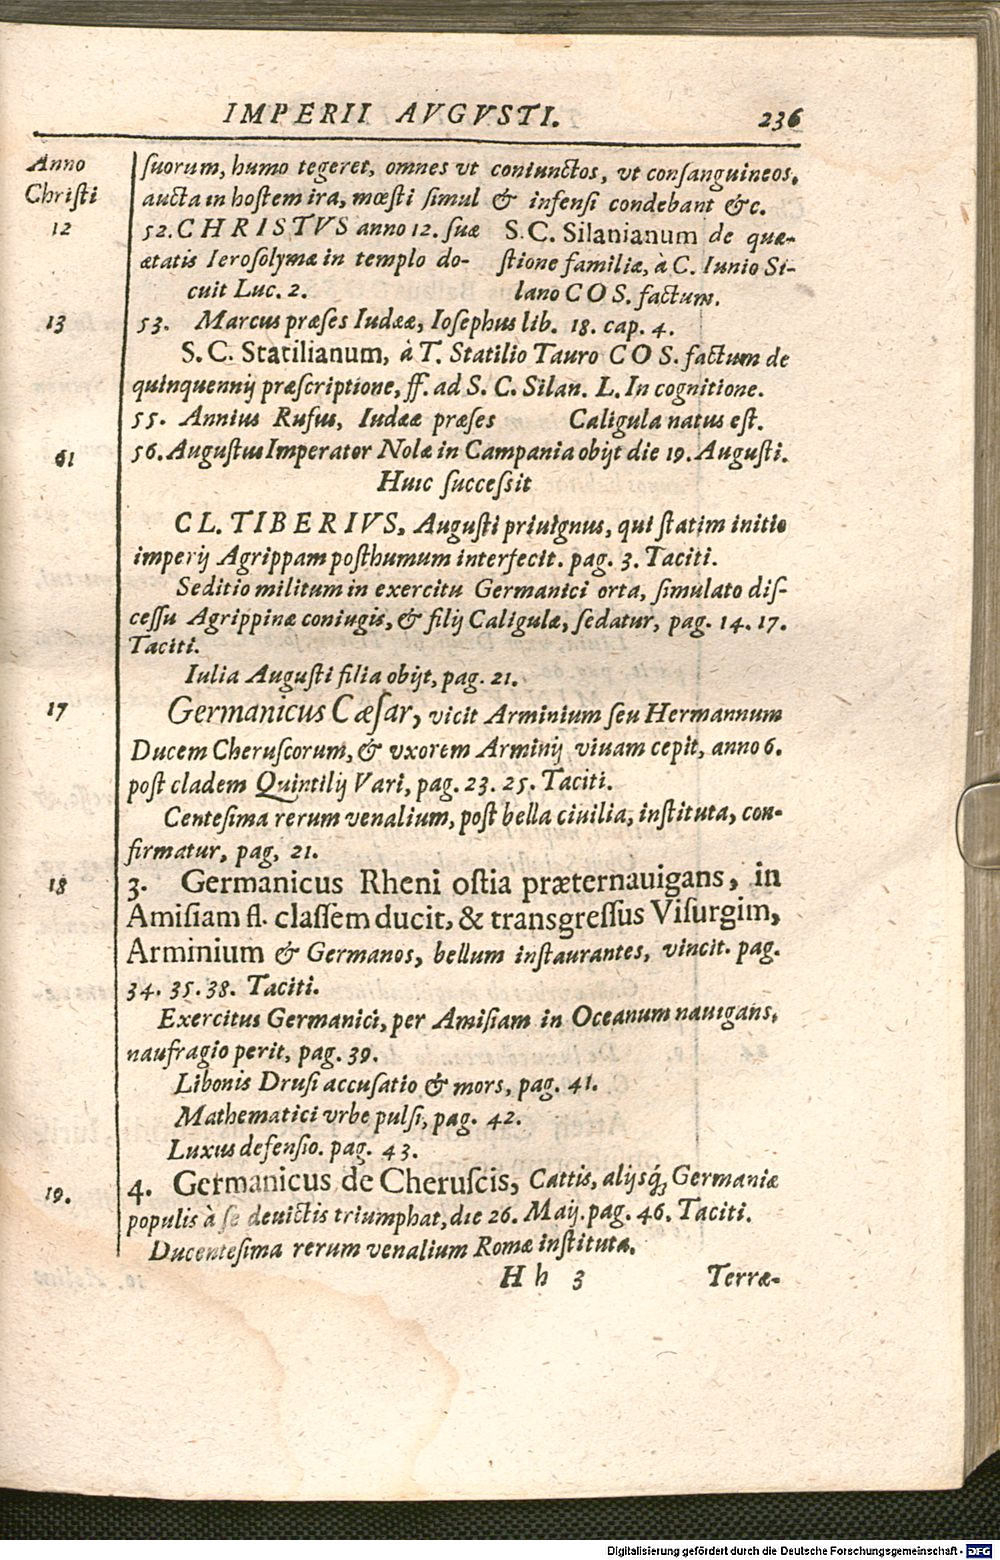 IMPERII AVGVSTI. 236
Anno
Christi
suorum, humo tegeret, omnes vt coniunctos, vt consanguineos,
aucta in hostem ira, mœsti simul & infensi condebant &c.
12
52. CHRISTVS anno 12. suæ
ætatis Ierosolymæ in templo do-
cuit Luc. 2.
S.C. Silanianum de quæ-
stione familiæ, à C. Iunio Si-
lano COS. factum.
13
53. Marcus præses Iudææ, Iosephus lib. 18. cap. 4.
S.C. Statilianum, à T. Statilio Tauro COS. factum de
quinquennij præscriptione, ff. ad S. C. Silan. L. In cognitione.
55. Annius Rufus, Iudææ præses Caligula natus est.
61 56. Augustus Imperator Nolæ in Campania obijt die 19. Augusti.
Huic successit
CL. TIBERIVS, Augusti priuignus, qui statim initio
imperij Agrippam posthumum interfecit. pag. 3. Taciti.
Seditio militum in exercitu Germanici orta, simulato dis-
cessu Agrippinæ coniugis, & filij Caligulæ, sedatur, pag. 14. 17.
Taciti.
Iulia Augusti filia obijt, pag. 21.
17 Germanicus Cæsar, vicit Arminium seu Hermannum
Ducem Cheruscorum, & vxorem Arminij viuam cepit, anno 6.
post cladem Quintilij Vari, pag. 23. 25. Taciti.
Centesima rerum venalium, post bella ciuilia, instituta, con-
firmatur, pag, 21.
18 3. Germanicus Rheni ostia præternauigans, in
Amisiam fl. classem ducit, & transgressus Visurgim,
Arminium & Germanos, bellum instaurantes, vincit. pag.
34. 35. 38. Taciti.
Exercitus Germanici, per Amisiam in Oceanum nauigans,
naufragio perit, pag. 39.
Libonis Drusi accusatio & mors, pag. 41.
Mathematici vrbe pulsi, pag. 42.
Luxus defensio. pag. 43.
19. 4. Germanicus de Cheruscis, Cattis, alijsq́; Germaniæ
populis à se deuictis triumphat, die 26. Maij. pag. 46. Taciti.
Ducentesima rerum venalium Romæ instituta.
Hh 3 Terræ-
Digitalisierung gefördert durch die Deutsche Forschungsgemeinschaft - DFG